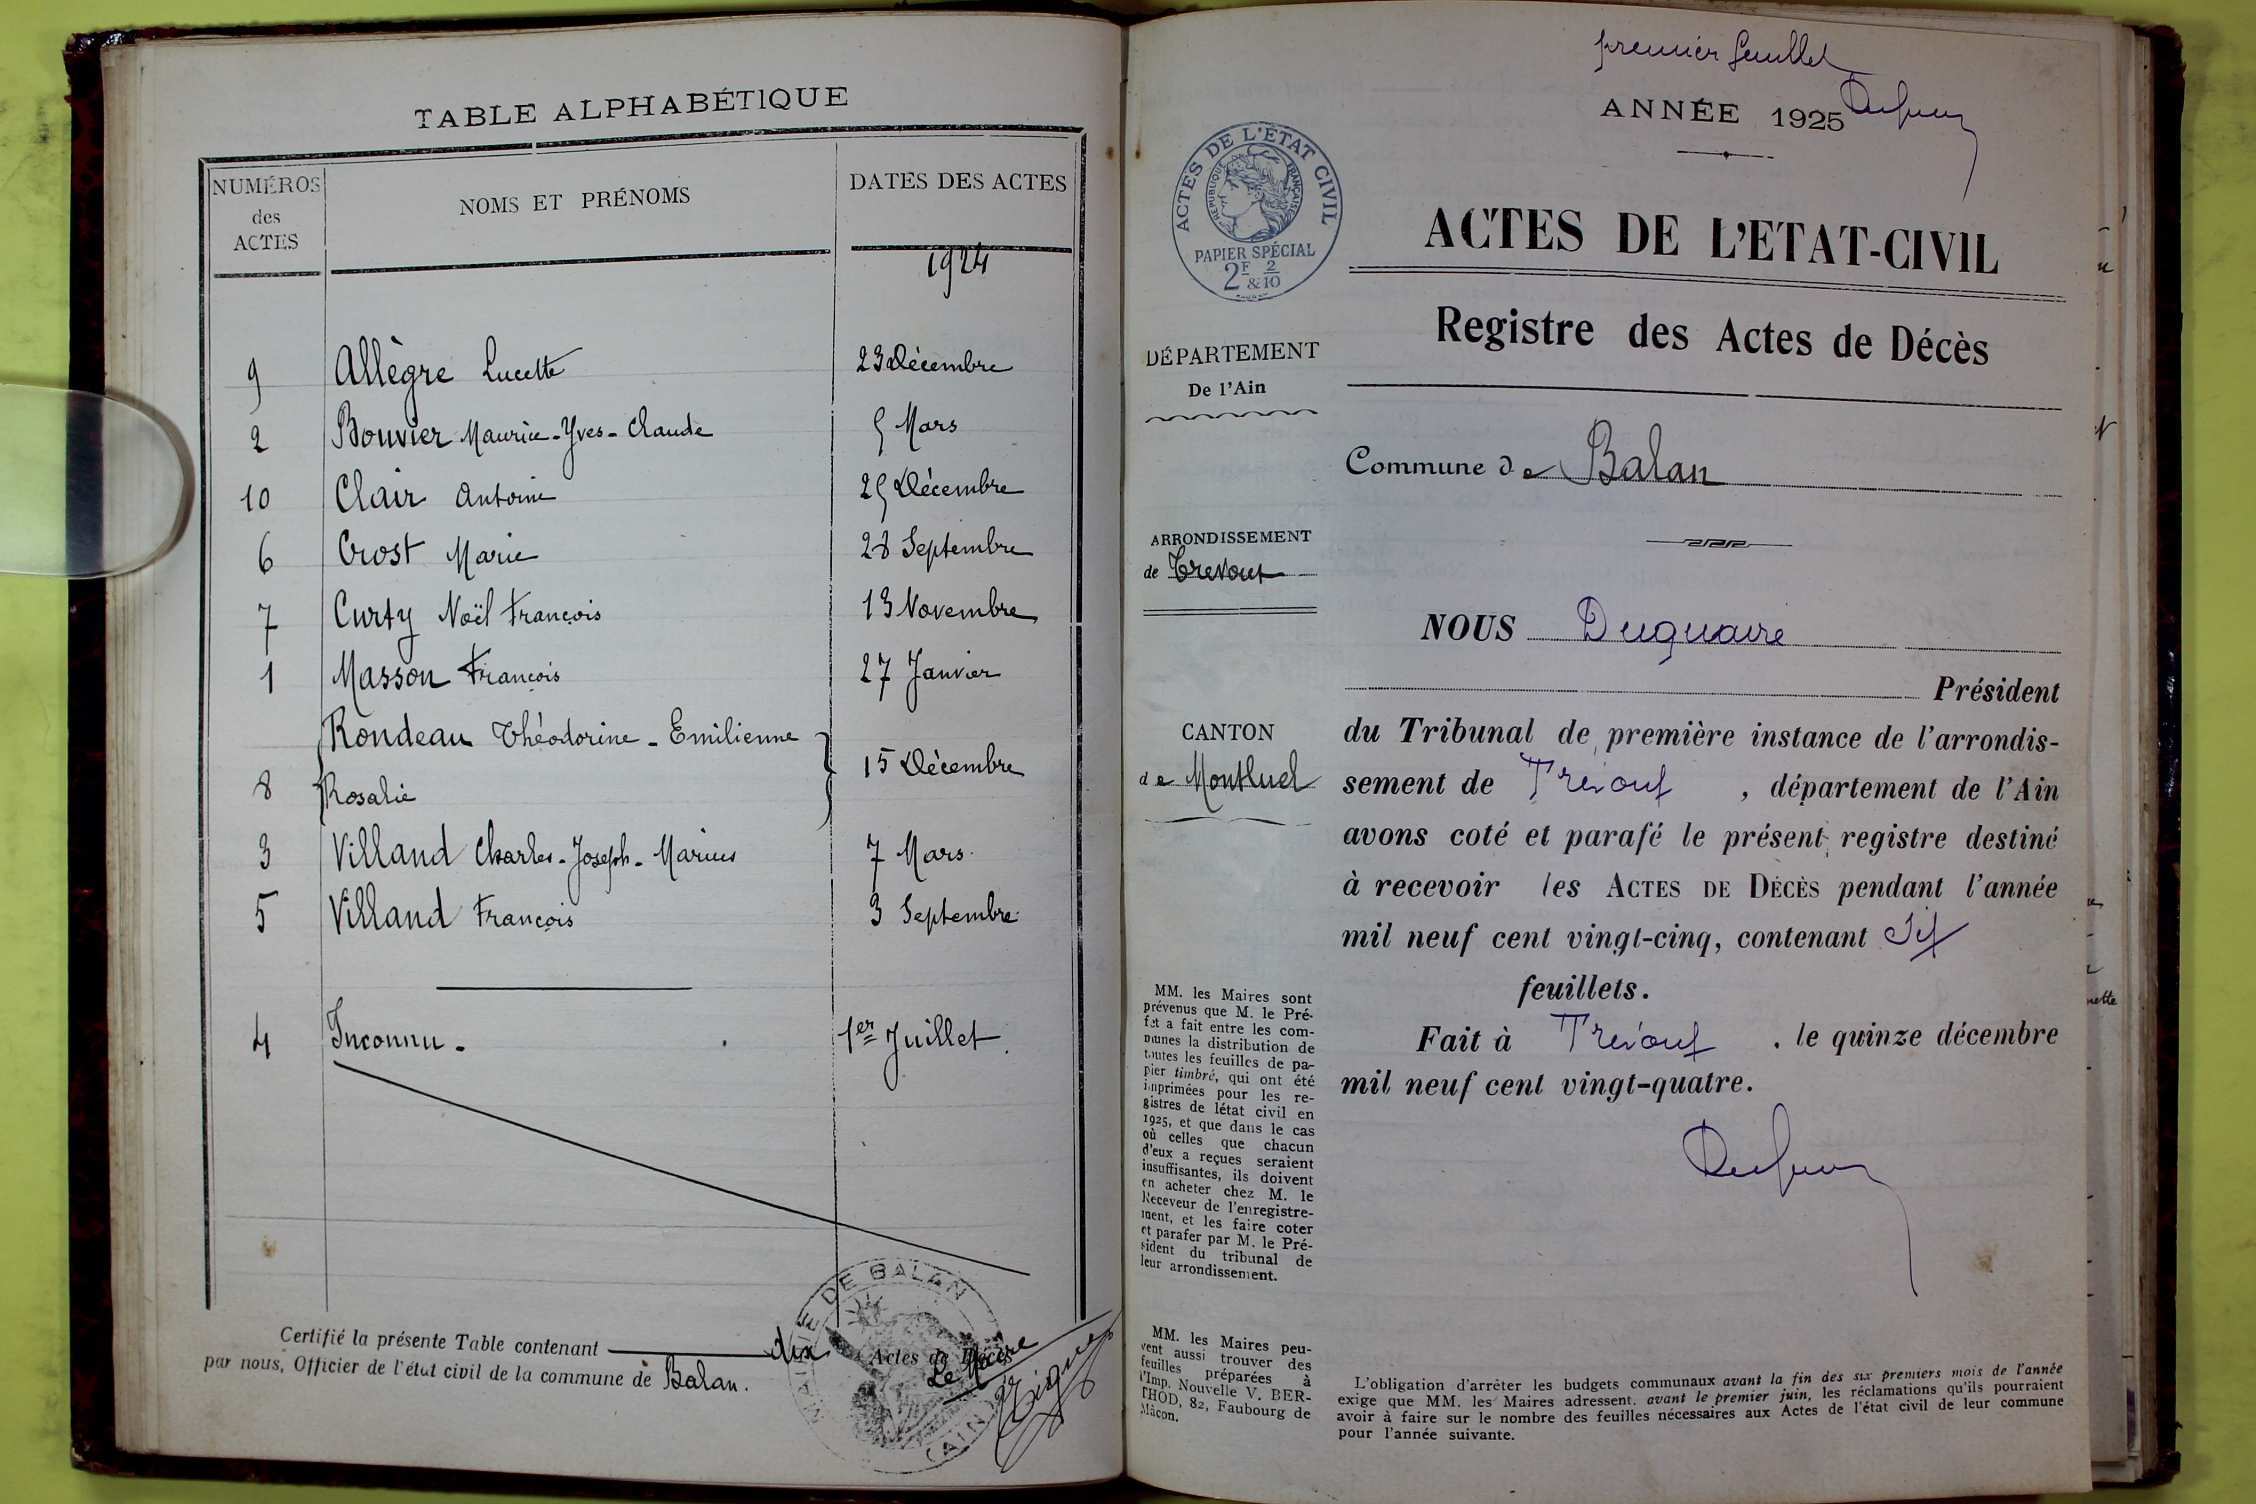 TABLE ALPHABÉTIQUE
NUMÉROS
des
ACTES
NOMS ET PRÉNOMS
DATES DES ACTES
1924
9 Allègre Lucette 23 Décembre
2 Bouvier Maurice-Yves-Claude 5 Mars
10 Clair Antoine 25 Décembre
6 Crost Marie 28 Septembre
7 Curty Noël François 13 Novembre
1 Masson François 27 Janvier
Rondeau Théodorine-Emilienne
8 Rosalie 15 Décembre
3 Villand Charles-Joseph-Marius 7 Mars
5 Villand François 3 Septembre
4 Inconnu. 1er Juillet.
Certifié la présente Table contenant dix Actes de Décès
par nous, Officier de l'état civil de la commune de Balan.
Le Maire
MAIRIE DE BALAN
(AIN)
premier feuillet
ANNÉE 1925
ACTES DE L'ÉTAT CIVIL
RÉPUBLIQUE FRANÇAISE
PAPIER SPÉCIAL
2F & 2/10
ACTES DE L'ETAT-CIVIL
Registre des Actes de Décès
DÉPARTEMENT
De l'Ain
Commune de Balan
ARRONDISSEMENT
de Trévoux
NOUS Duquaire
Président
CANTON
de Montluel
du Tribunal de première instance de l'arrondis-
sement de Trévoux, département de l'Ain
avons coté et parafé le présent registre destiné
à recevoir les ACTES DE DÉCÈS pendant l'année
mil neuf cent vingt-cinq, contenant Six
feuillets.
Fait à Trévoux, le quinze décembre
mil neuf cent vingt-quatre.
MM. les Maires sont
prévenus que M. le Pré-
fet a fait entre les com-
munes la distribution de
toutes les feuilles de pa-
pier timbré, qui ont été
imprimées pour les re-
gistres de létat civil en
1925, et que dans le cas
où celles que chacun
d'eux a reçues seraient
insuffisantes, ils doivent
en acheter chez M. le
Receveur de l'enregistre-
ment, et les faire coter
et parafer par M. le Pré-
sident du tribunal de
leur arrondissement.
MM. les Maires peu-
vent aussi trouver des
feuilles préparées à
l'Imp. Nouvelle V. BER-
THOD, 82, Faubourg de
Mâcon.
L'obligation d'arrêter les budgets communaux avant la fin des six premiers mois de l'année
exige que MM. les Maires adressent, avant le premier juin, les réclamations qu'ils pourraient
avoir à faire sur le nombre des feuilles nécessaires aux Actes de l'état civil de leur commune
pour l'année suivante.